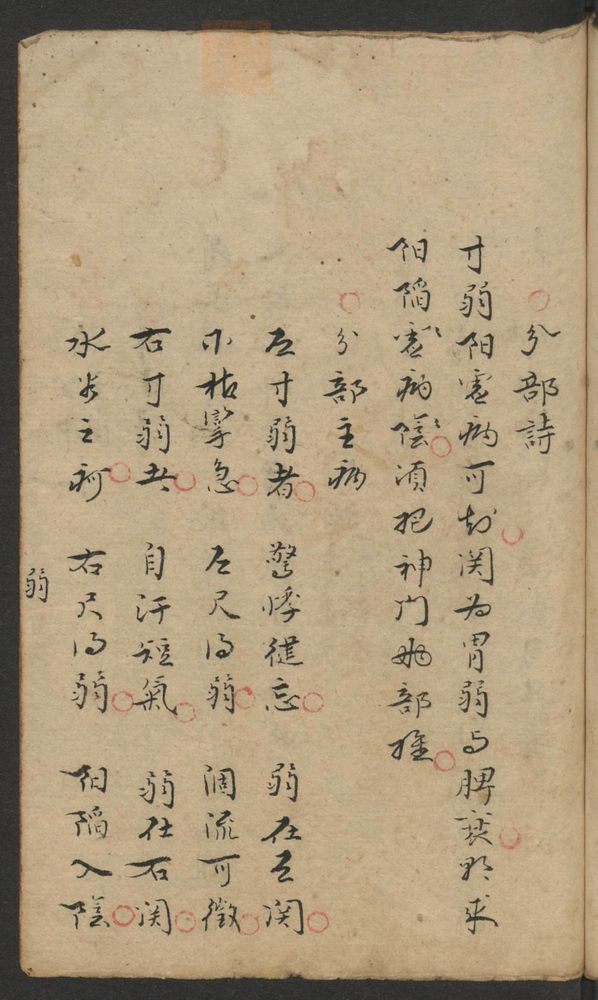 分部詩
寸弱阳虛病可知関為胃弱与脾衰欲求
阳陷虛病陰須把神门两部推
分部主病
左寸弱者 驚悸健忘 弱在左関
木枯攣急 左尺得弱 涸流可徵
右寸弱 自汗短氣 弱在右関
水谷之疴 右尺得弱 阳陷入陰
弱